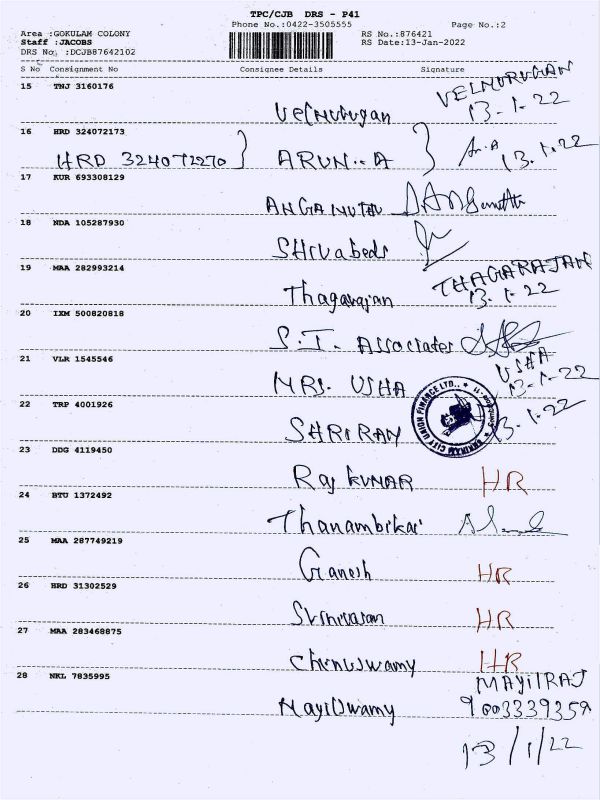 TPC/CJB DRS - P41
Phone No.:0422-3505555 Page No.:2
Area :GOKULAM COLONY RS No.:876421
Staff :JACOBS RS Date:13-Jan-2022
DRS No. :DCJB87642102
S No Consignment No Consignee Details Signature
15 TNJ 3160176 Velmurugan VELMURUGAN
13-1-22
16 HRD 324072173
HRD 324072270 ARUN..A Ar.A 13.1.22
17 KUR 693308129
ANGAMUTHU
18 NDA 105287930
Shivabedi
19 MAA 282993214 THAGARAJAN
Thagarajan 13.1.22
20 IXM 500820818
S.I. Associates
21 VLR 1545546 USHA
MRS. USHA 13-1-22
22 TRP 4001926 SHRIRAM CITY UNION FINANCE LTD.,
SHRIRAM 13-1-22
23 DDG 4119450
Raj KUMAR HR
24 BTU 1372492
Thanambikai
25 MAA 287749219
Ganesh HR
26 HRD 31302529
Srinivasan HR
27 MAA 283468875
Chinuswamy HR
28 NKL 7835995 MAYilRAJ
Mayilswamy 9003339359
13/1/22